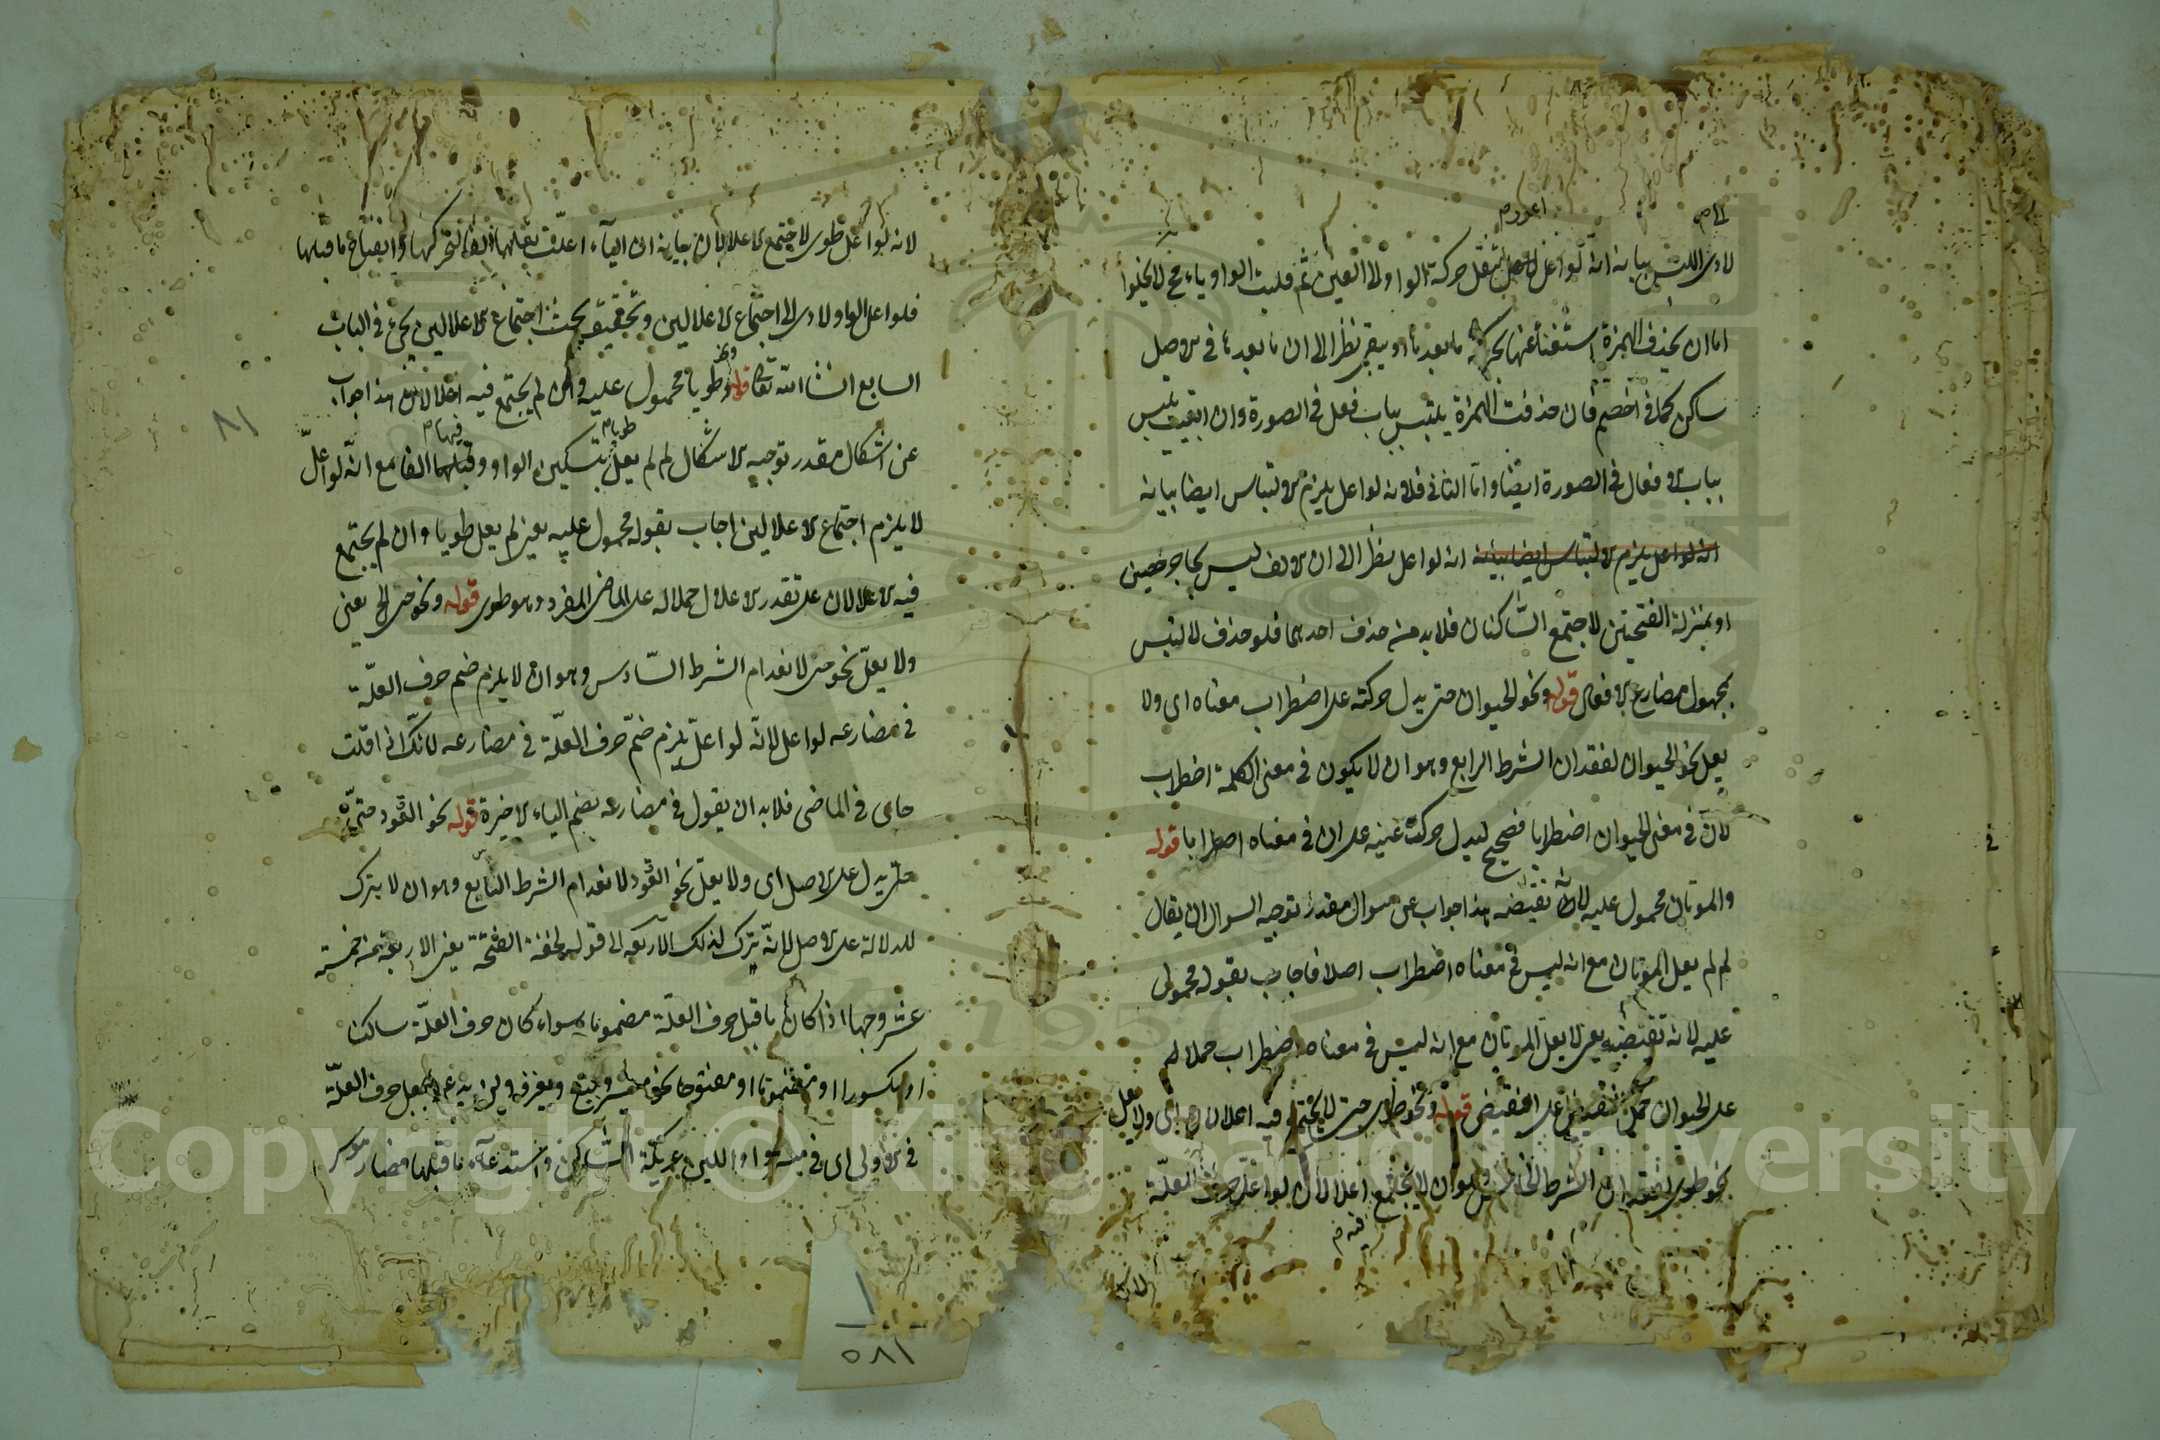 الى م
اعورم
لادى اللبس بيانه انه لو اعل لاصل بنقل حركة الواو الى العين ثم قلبت الواو ياء فح لا يخلوا
اما ان يحذف الهمزة استغناء عنها لحركة ما بعدها او يبقى نظرا الى ان ما بعدها فى الاصل
ساكن كما فى اخصم فان حذفت الهمزة يلتبس بباب فعل فى الصورة وان ابقيت يلتبس
بباب الافعال فى الصورة ايضا واما الثانى فلانه لو اعل يلزم الالتباس ايضا بيانه
انه لو اعل يلزم الالتباس ايضا بيانه انه لو اعل نظرا الى ان الالف ليس بحاجز حصين
او بمنزلة الفتحتين لاجتمع الساكنان فلا بد من حذف احدهما فلو حذف لالتبس
بمجهول مضارع الافعال قوله ونحو الحيوان حتى يدل حركته على اضطراب معناه اى ولا
يعل نحو الحيوان لفقدان الشرط الرابع وهو ان لا يكون فى معنى الكلمة اضطراب
لان فى معنى الحيوان اضطرابا فصحح ليدل حركة عينه على ان فى معناه اضطرابا قوله
والموتان محمول عليه لانه نقيضه هذا جواب عن سوال مقدر توجيه السوال ان يقال
لم لم يعل الموتان مع انه ليس فى معناه اضطراب اصلا فاجاب بقوله محمول
عليه لانه نقيضه يعنى لا يعل الموتان مع انه ليس فى معناه اضطراب حملا له
على الحيوان حمل النقيض على النقيض قوله ونحو طوى حتى لا يجتمع فيه اعلالان اى ولا يعل
نحو طوى لفقدان الشرط الخامس وهو ان لا يجتمع اعلالان لو اعل حرف العلة
فيه م
لانه
لانه لو اعل طوى لاجتمع الاعلالان بيانه ان الياء اعلت بقلبها الفا لتحركها وانفتاح ما قبلها
فلو اعل الواو لادى الى اجتماع الاعلالين وتحقيق بحث اجتماع الاعلالين يجئ فى الباب
السابع ان شاء الله تعا قوله وطويا محمول عليه وان لم يجتمع فيه اعلالان هذا جواب
عن اشكال مقدر توجيه الاشكال لم لم يعل بتسكين الواو وقلبها الفا مع انه لو اعل
لا يلزم اجتماع الاعلالين اجاب بقوله محمول عليه يعنى لم يعل طويا وان لم يجتمع
فيه الاعلالان على تقدير الاعلال حملا له على الماضى المفرد وهو طوى قوله ونحو حيى الخ يعنى
ولا يعل نحو حيى لانعدام الشرط السادس وهو ان لا يلزم ضم حرف العلة
فى مضارعه لو اعل لانه لو اعل يلزم ضم حرف العلة فى مضارعه لانك اذا قلت
حاى فى الماضى فلا بد ان يقول فى مضارعه بضم الياء الاخيرة قوله نحو القود حتى
حتى يدل على الاصل اى ولا يعل نحو القود لانعدام الشرط السابع وهو ان لا يترك
للدلالة على الاصل لانه يترك لذلك الاربعة الى قوله لخفة الفتحة يعنى الاربعة من خمسة
عشر وجها اذا كان ما قبل حرف العلة مضموما سواء كان حرف العلة ساكنا
او مكسورا او مضموما او مفتوحا نحو ميسر وبيع ويغزو ولن يدعو يجعل حرف العلة
فى الاولى اى فى ميسر واوا للين عريكة الساكن واستدعاء ما قبلها فصار موسر
٨١
١
٥٨١